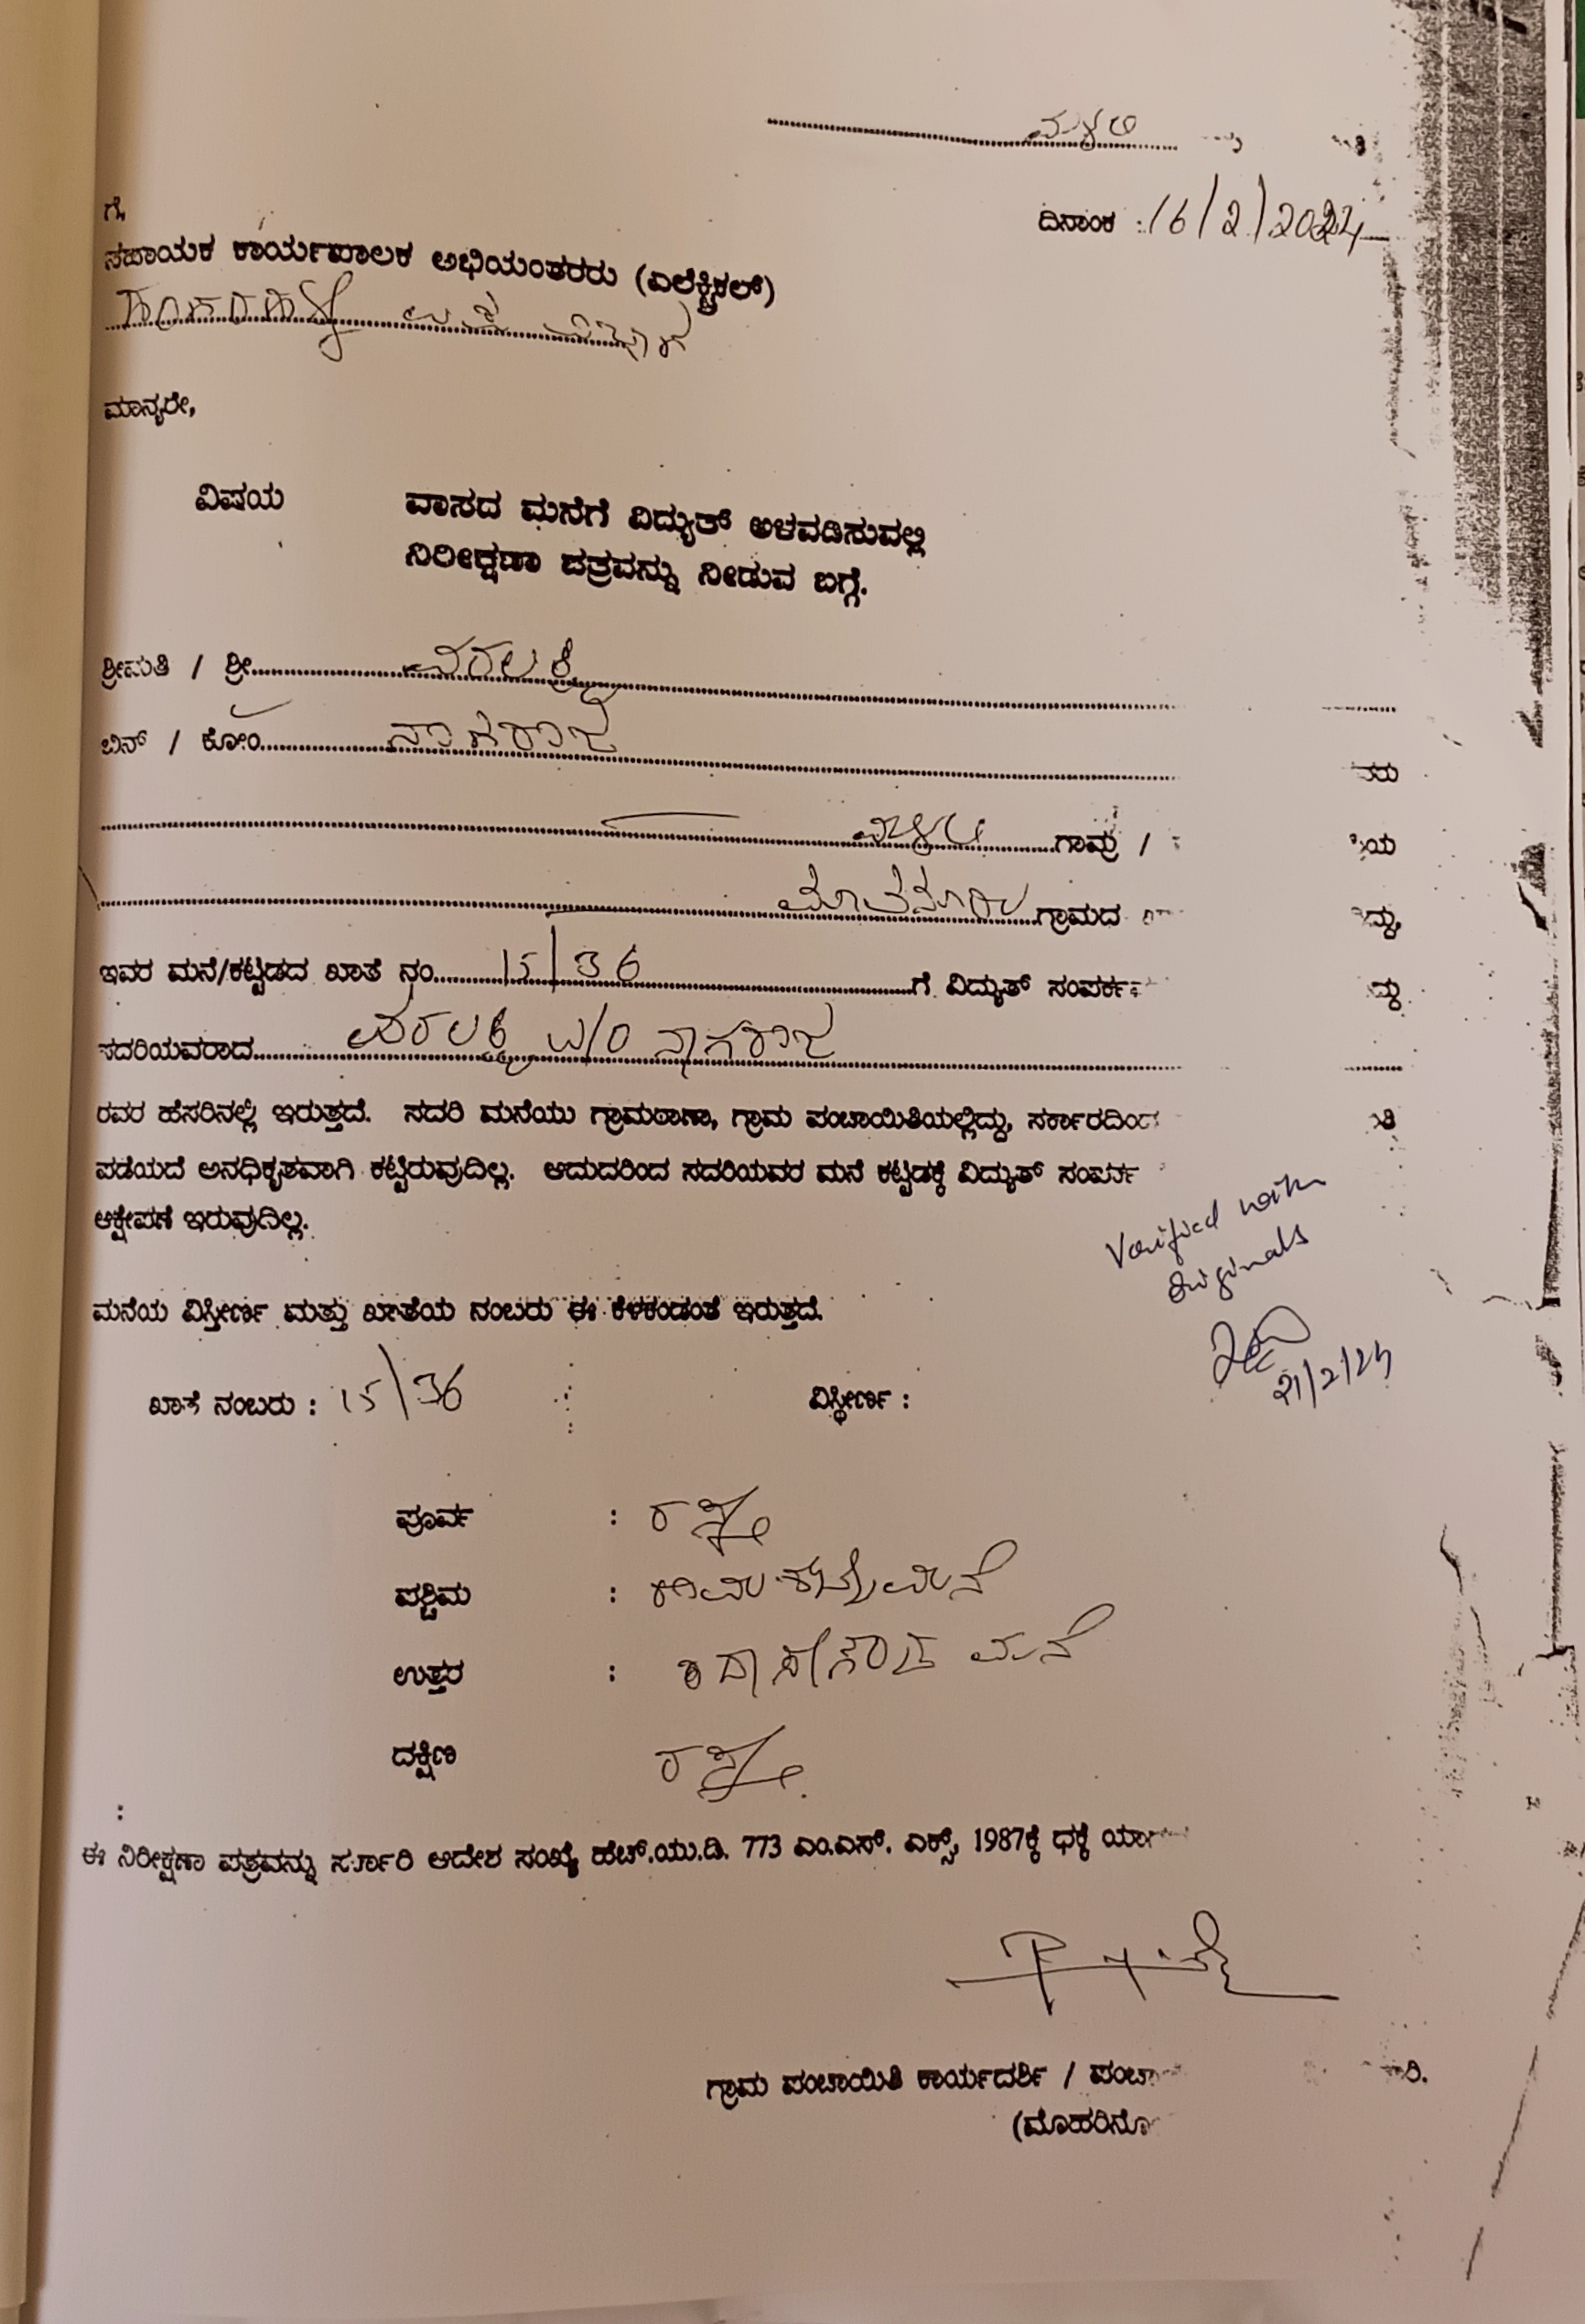 ಮಳಲಿ
ದಿನಾಂಕ : 16/2/2024
ಗೆ,
ಸಹಾಯಕ ಕಾರ್ಯಪಾಲಕ ಅಭಿಯಂತರರು (ಎಲೆಕ್ಟ್ರಿಕಲ್)
ಮಾನ್ಯರೇ,
ವಿಷಯ ವಾಸದ ಮನೆಗೆ ವಿದ್ಯುತ್ ಅಳವಡಿಸುವಲ್ಲಿ
ನಿರೀಕ್ಷಣಾ ಪತ್ರವನ್ನು ನೀಡುವ ಬಗ್ಗೆ.
ಶ್ರೀಮತಿ / ಶ್ರೀ ವರಲಕ್ಷ್ಮಿ
ಬಿನ್ / ಕೋಂ ನಾಗರಾಜ
ಮಳಲಿ ಗ್ರಾಮ /
ಗ್ರಾಮದ
ಇವರ ಮನೆ/ಕಟ್ಟಡದ ಖಾತೆ ನಂ 15/36 ಗೆ ವಿದ್ಯುತ್ ಸಂಪರ್ಕ
ಸದರಿಯವರಾದ ವರಲಕ್ಷ್ಮಿ W/O ನಾಗರಾಜ
ರವರ ಹೆಸರಿನಲ್ಲಿ ಇರುತ್ತದೆ. ಸದರಿ ಮನೆಯು ಗ್ರಾಮಠಾಣಾ, ಗ್ರಾಮ ಪಂಚಾಯಿತಿಯಲ್ಲಿದ್ದು, ಸರ್ಕಾರದಿಂದ
ಪಡೆಯದೆ ಅನಧಿಕೃತವಾಗಿ ಕಟ್ಟಿರುವುದಿಲ್ಲ. ಆದುದರಿಂದ ಸದರಿಯವರ ಮನೆ ಕಟ್ಟಡಕ್ಕೆ ವಿದ್ಯುತ್ ಸಂಪರ್ಕ
ಆಕ್ಷೇಪಣೆ ಇರುವುದಿಲ್ಲ.
Verified with
originals
21/2/24
ಮನೆಯ ವಿಸ್ತೀರ್ಣ ಮತ್ತು ಖಾತೆಯ ನಂಬರು ಈ ಕೆಳಕಂಡಂತೆ ಇರುತ್ತದೆ.
ಖಾತೆ ನಂಬರು : 15/36 ವಿಸ್ತೀರ್ಣ :
ಪೂರ್ವ : ರಸ್ತೆ
ಪಶ್ಚಿಮ : ಮನೆ
ಉತ್ತರ : ಮನೆ
ದಕ್ಷಿಣ ರಸ್ತೆ
:
ಈ ನಿರೀಕ್ಷಣಾ ಪತ್ರವನ್ನು ಸರ್ಕಾರಿ ಆದೇಶ ಸಂಖ್ಯೆ ಹೆಚ್.ಯು.ಡಿ. 773 ಎಂ.ಎಸ್. ಎಕ್ಸ್, 1987ಕ್ಕೆ ಧಕ್ಕೆ
ಗ್ರಾಮ ಪಂಚಾಯಿತಿ ಕಾರ್ಯದರ್ಶಿ /
(ಮೊಹರಿನೊ